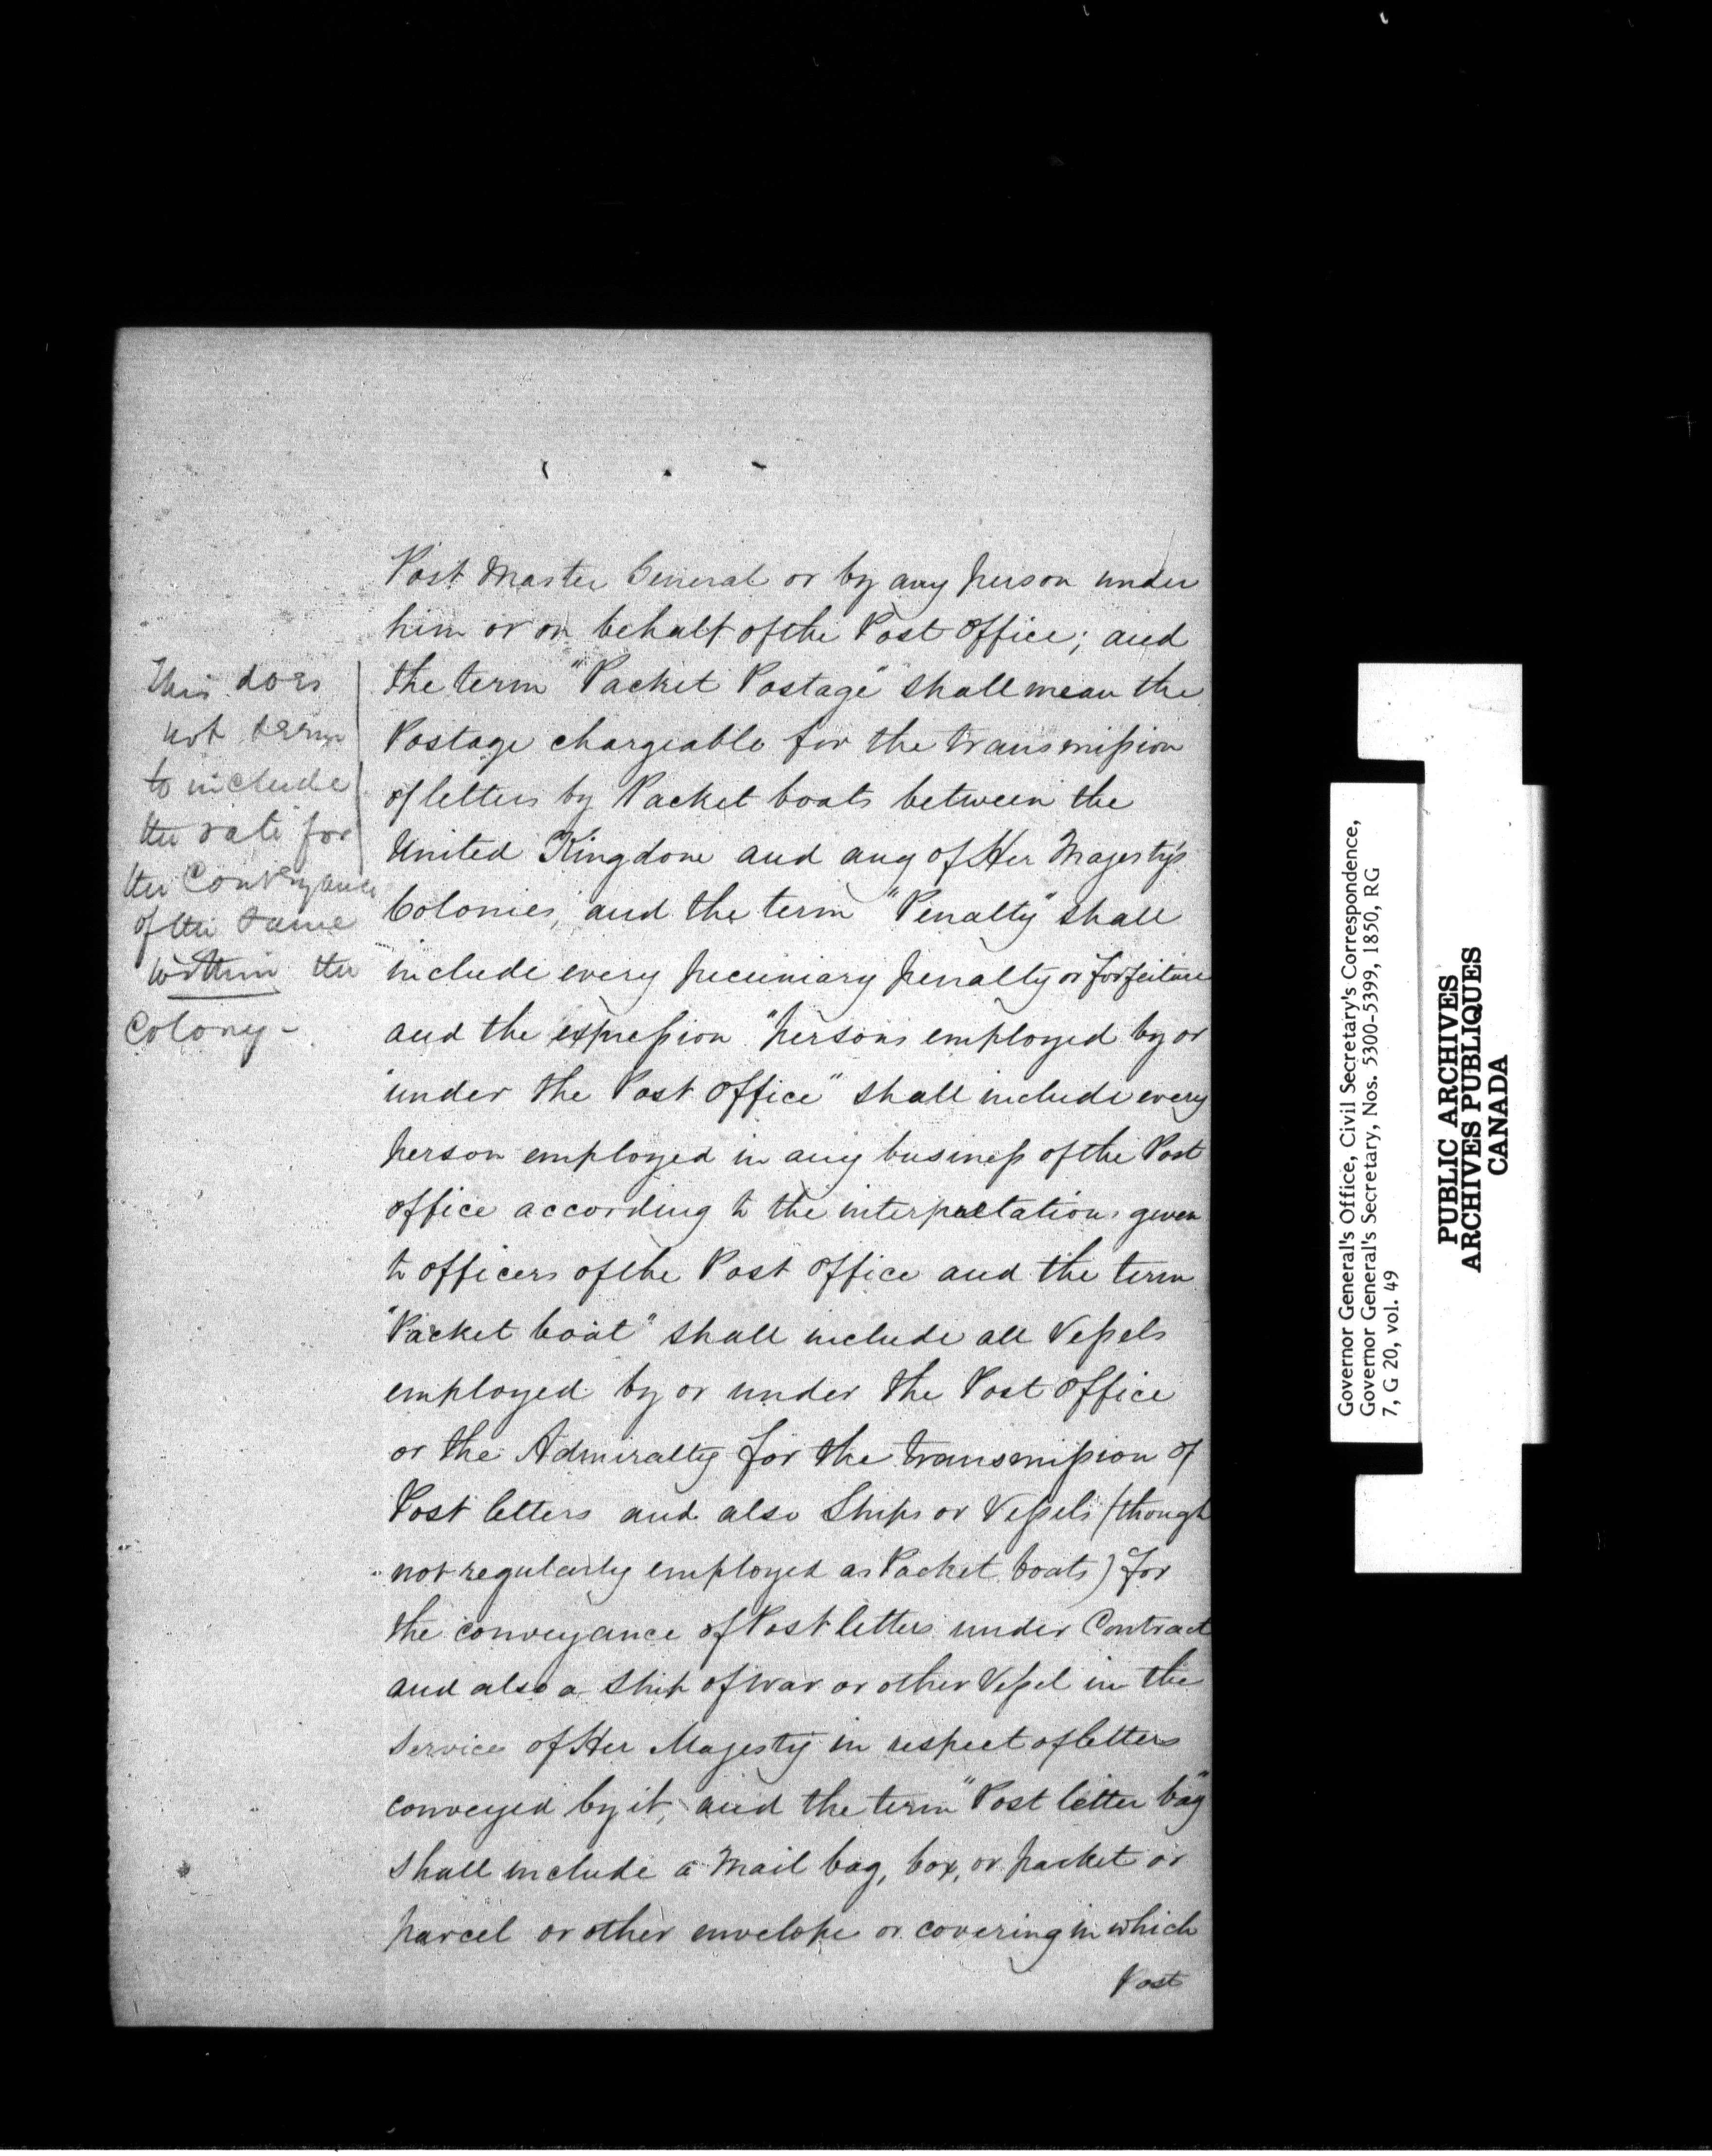 Post Master General or by any person under
him or on behalf of the Post Office; and
the term "Packet Postage" shall mean the
Postage chargeable for the transmission
of letters by Packet boats between the
United Kingdom and any of Her Majesty's
Colonies, and the term "Penalty" shall
include every pecuniary penalty or forfeiture
and the expression "persons employed by or
"under the Post Office" shall include every
person employed in any business of the Post
office according to the interpretation given
to officers of the Post Office and the term
"Packet boat" shall include all Vessels
employed by or under the Post Office
or the Admiralty for the transmission of
Post letters and also Ships or Vessels (though
not regularly employed as Packet boats) for
the conveyance of Post letters under Contract
and also a Ship of war or other Vessel in the
Service of Her Majesty in respect of letters
conveyed by it, and the term "Post letter bag"
shall include a Mail bag, box, or packet or
parcel or other envelope or covering in which
Post
This does
not seem
to include
the rate for
the Conveyance
of the same
within the
Colony -
Governor General's Office, Civil Secretary's Correspondence,
Governor General's Secretary, Nos. 5300-5399, 1850, RG
7, G 20, vol. 49
PUBLIC ARCHIVES
ARCHIVES PUBLIQUES
CANADA